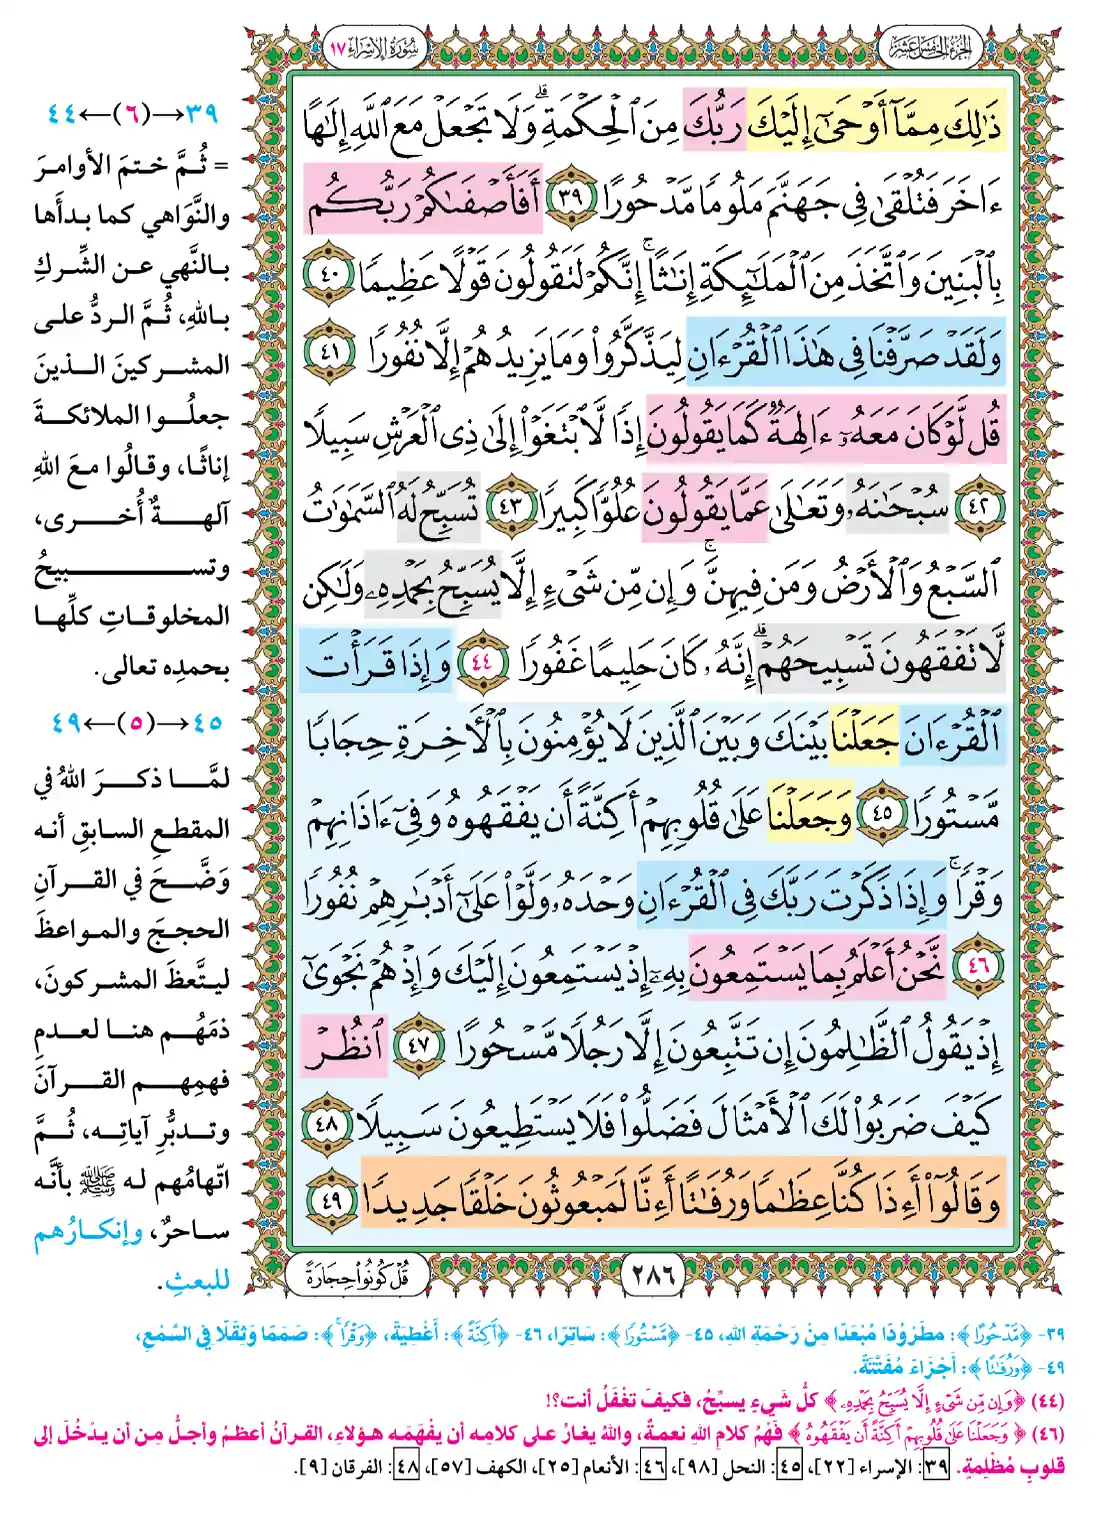 الجزء الخامس عشر
سورة الإسراء ١٧
ذَٰلِكَ مِمَّآ أَوْحَىٰٓ إِلَيْكَ رَبُّكَ مِنَ ٱلْحِكْمَةِ ۗ وَلَا تَجْعَلْ مَعَ ٱللَّهِ إِلَٰهًا
ءَاخَرَ فَتُلْقَىٰ فِى جَهَنَّمَ مَلُومًا مَّدْحُورًا ٣٩ أَفَأَصْفَىٰكُمْ رَبُّكُم
بِٱلْبَنِينَ وَٱتَّخَذَ مِنَ ٱلْمَلَٰٓئِكَةِ إِنَٰثًا ۚ إِنَّكُمْ لَتَقُولُونَ قَوْلًا عَظِيمًا ٤٠
وَلَقَدْ صَرَّفْنَا فِى هَٰذَا ٱلْقُرْءَانِ لِيَذَّكَّرُوا۟ وَمَا يَزِيدُهُمْ إِلَّا نُفُورًا ٤١
قُل لَّوْ كَانَ مَعَهُۥٓ ءَالِهَةٌ كَمَا يَقُولُونَ إِذًا لَّٱبْتَغَوْا۟ إِلَىٰ ذِى ٱلْعَرْشِ سَبِيلًا
٤٢ سُبْحَٰنَهُۥ وَتَعَٰلَىٰ عَمَّا يَقُولُونَ عُلُوًّا كَبِيرًا ٤٣ تُسَبِّحُ لَهُ ٱلسَّمَٰوَٰتُ
ٱلسَّبْعُ وَٱلْأَرْضُ وَمَن فِيهِنَّ ۚ وَإِن مِّن شَىْءٍ إِلَّا يُسَبِّحُ بِحَمْدِهِۦ وَلَٰكِن
لَّا تَفْقَهُونَ تَسْبِيحَهُمْ ۗ إِنَّهُۥ كَانَ حَلِيمًا غَفُورًا ٤٤ وَإِذَا قَرَأْتَ
ٱلْقُرْءَانَ جَعَلْنَا بَيْنَكَ وَبَيْنَ ٱلَّذِينَ لَا يُؤْمِنُونَ بِٱلْءَاخِرَةِ حِجَابًا
مَّسْتُورًا ٤٥ وَجَعَلْنَا عَلَىٰ قُلُوبِهِمْ أَكِنَّةً أَن يَفْقَهُوهُ وَفِىٓ ءَاذَانِهِمْ
وَقْرًا ۚ وَإِذَا ذَكَرْتَ رَبَّكَ فِى ٱلْقُرْءَانِ وَحْدَهُۥ وَلَّوْا۟ عَلَىٰٓ أَدْبَٰرِهِمْ نُفُورًا
٤٦ نَّحْنُ أَعْلَمُ بِمَا يَسْتَمِعُونَ بِهِۦٓ إِذْ يَسْتَمِعُونَ إِلَيْكَ وَإِذْ هُمْ نَجْوَىٰٓ
إِذْ يَقُولُ ٱلظَّٰلِمُونَ إِن تَتَّبِعُونَ إِلَّا رَجُلًا مَّسْحُورًا ٤٧ ٱنظُرْ
كَيْفَ ضَرَبُوا۟ لَكَ ٱلْأَمْثَالَ فَضَلُّوا۟ فَلَا يَسْتَطِيعُونَ سَبِيلًا ٤٨
وَقَالُوٓا۟ أَءِذَا كُنَّا عِظَٰمًا وَرُفَٰتًا أَءِنَّا لَمَبْعُوثُونَ خَلْقًا جَدِيدًا ٤٩
٢٨٦
قُل كُونُوا۟ حِجَارَةً
٣٩→(٦)←٤٤
= ثُمَّ ختمَ الأوامرَ
والنَّواهي كما بدأها
بالنَّهي عن الشِّركِ
باللهِ، ثُمَّ الردُّ على
المشركينَ الذينَ
جعلُوا الملائكةَ
إناثًا، وقالُوا معَ اللهِ
آلهةٌ أُخرى،
وتسبيحُ
المخلوقاتِ كلِّها
بحمدِه تعالى.
٤٥→(٥)←٤٩
لمَّا ذكرَ اللهُ في
المقطعِ السابقِ أنه
وَضَّحَ في القرآنِ
الحججَ والمواعظَ
ليتَّعظَ المشركونَ،
ذمَهُم هنا لعدمِ
فهمِهم القرآنَ
وتدبُّرِ آياتِه، ثُمَّ
اتّهامُهم له ﷺ بأنَّه
ساحرٌ، وإنكارُهم
للبعثِ.
٣٩- ﴿مَّدْحُورًا﴾: مطْرُودًا مُبْعَدًا مِنْ رَحْمَةِ اللهِ، ٤٥- ﴿مَّسْتُورًا﴾: سَاتِرًا، ٤٦- ﴿أَكِنَّةً﴾: أَغْطِيَةً، ﴿وَقْرًا ۚ﴾: صَمَمًا وَثِقَلًا فِي السَّمْعِ،
٤٩- ﴿وَرُفَٰتًا﴾: أَجْزَاءً مُفَتَّتَةً.
(٤٤) ﴿وَإِن مِّن شَىْءٍ إِلَّا يُسَبِّحُ بِحَمْدِهِۦ﴾ كلُّ شيءٍ يسبِّحُ، فكيفَ تَغْفَلُ أنت؟!
(٤٦) ﴿وَجَعَلْنَا عَلَىٰ قُلُوبِهِمْ أَكِنَّةً أَن يَفْقَهُوهُ﴾ فَهْمُ كلامِ اللهِ نعمةٌ، واللهُ يغارُ على كلامِه أن يفْهَمَه هؤلاءِ، القرآنُ أعظمُ وأجلُّ من أن يدْخُلَ إلى
قلوبٍ مُظْلِمةٍ. ٣٩: الإسراء [٢٢]، ٤٥: النحل [٩٨]، ٤٦: الأنعام [٢٥]، الكهف [٥٧]، ٤٨: الفرقان [٩].